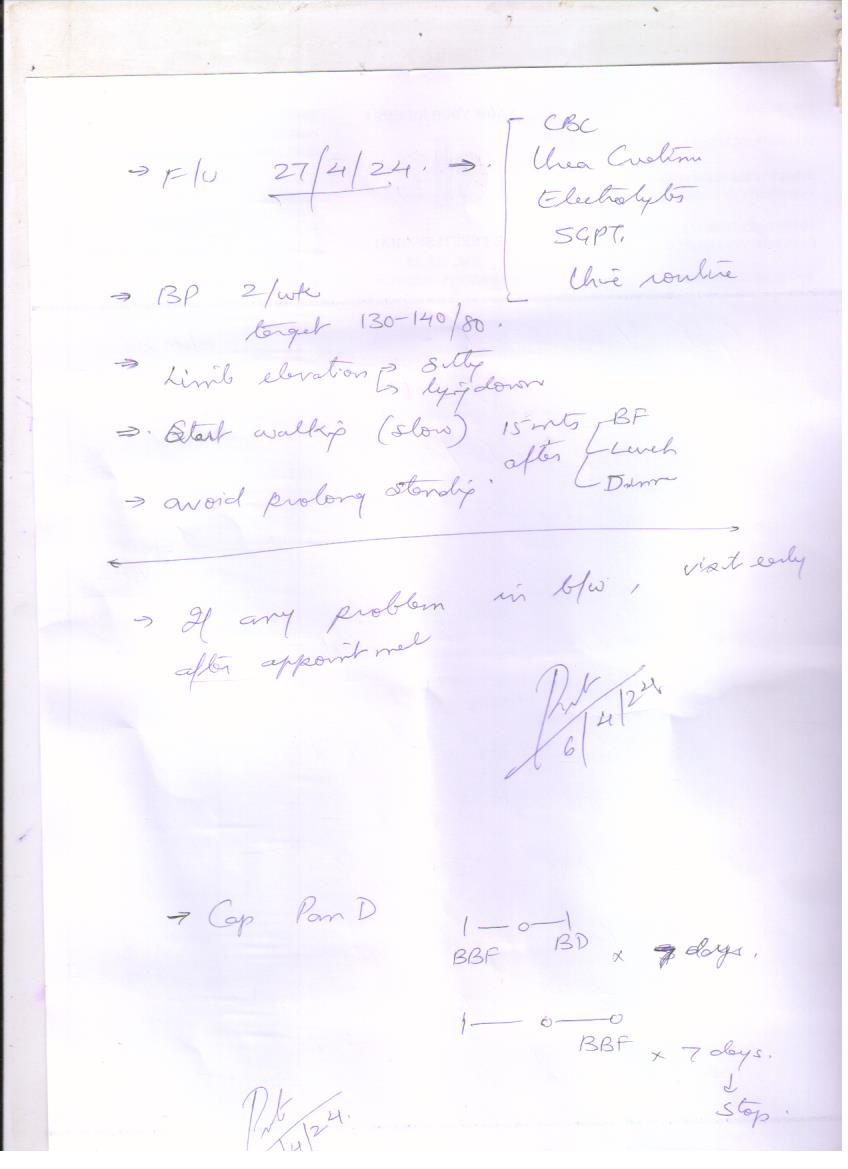 → F/U 27/4/24. →
CBC
Urea Creatinine
Electrolytes
SGPT.
Urine routine
→ BP 2/wk
target 130-140/80.
→ Limb elevation → sitting
→ lying down
→ Start walking (slow) 15 mts after BF
Lunch
Dinner
→ avoid prolong standing.
→ If any problem in b/w, visit early
after appointment
6/4/24
→ Cap Pan D 1 — o — 1
BBF BD x 7 days.
1 — o — o
BBF x 7 days.
↓
Stop.
4/24.